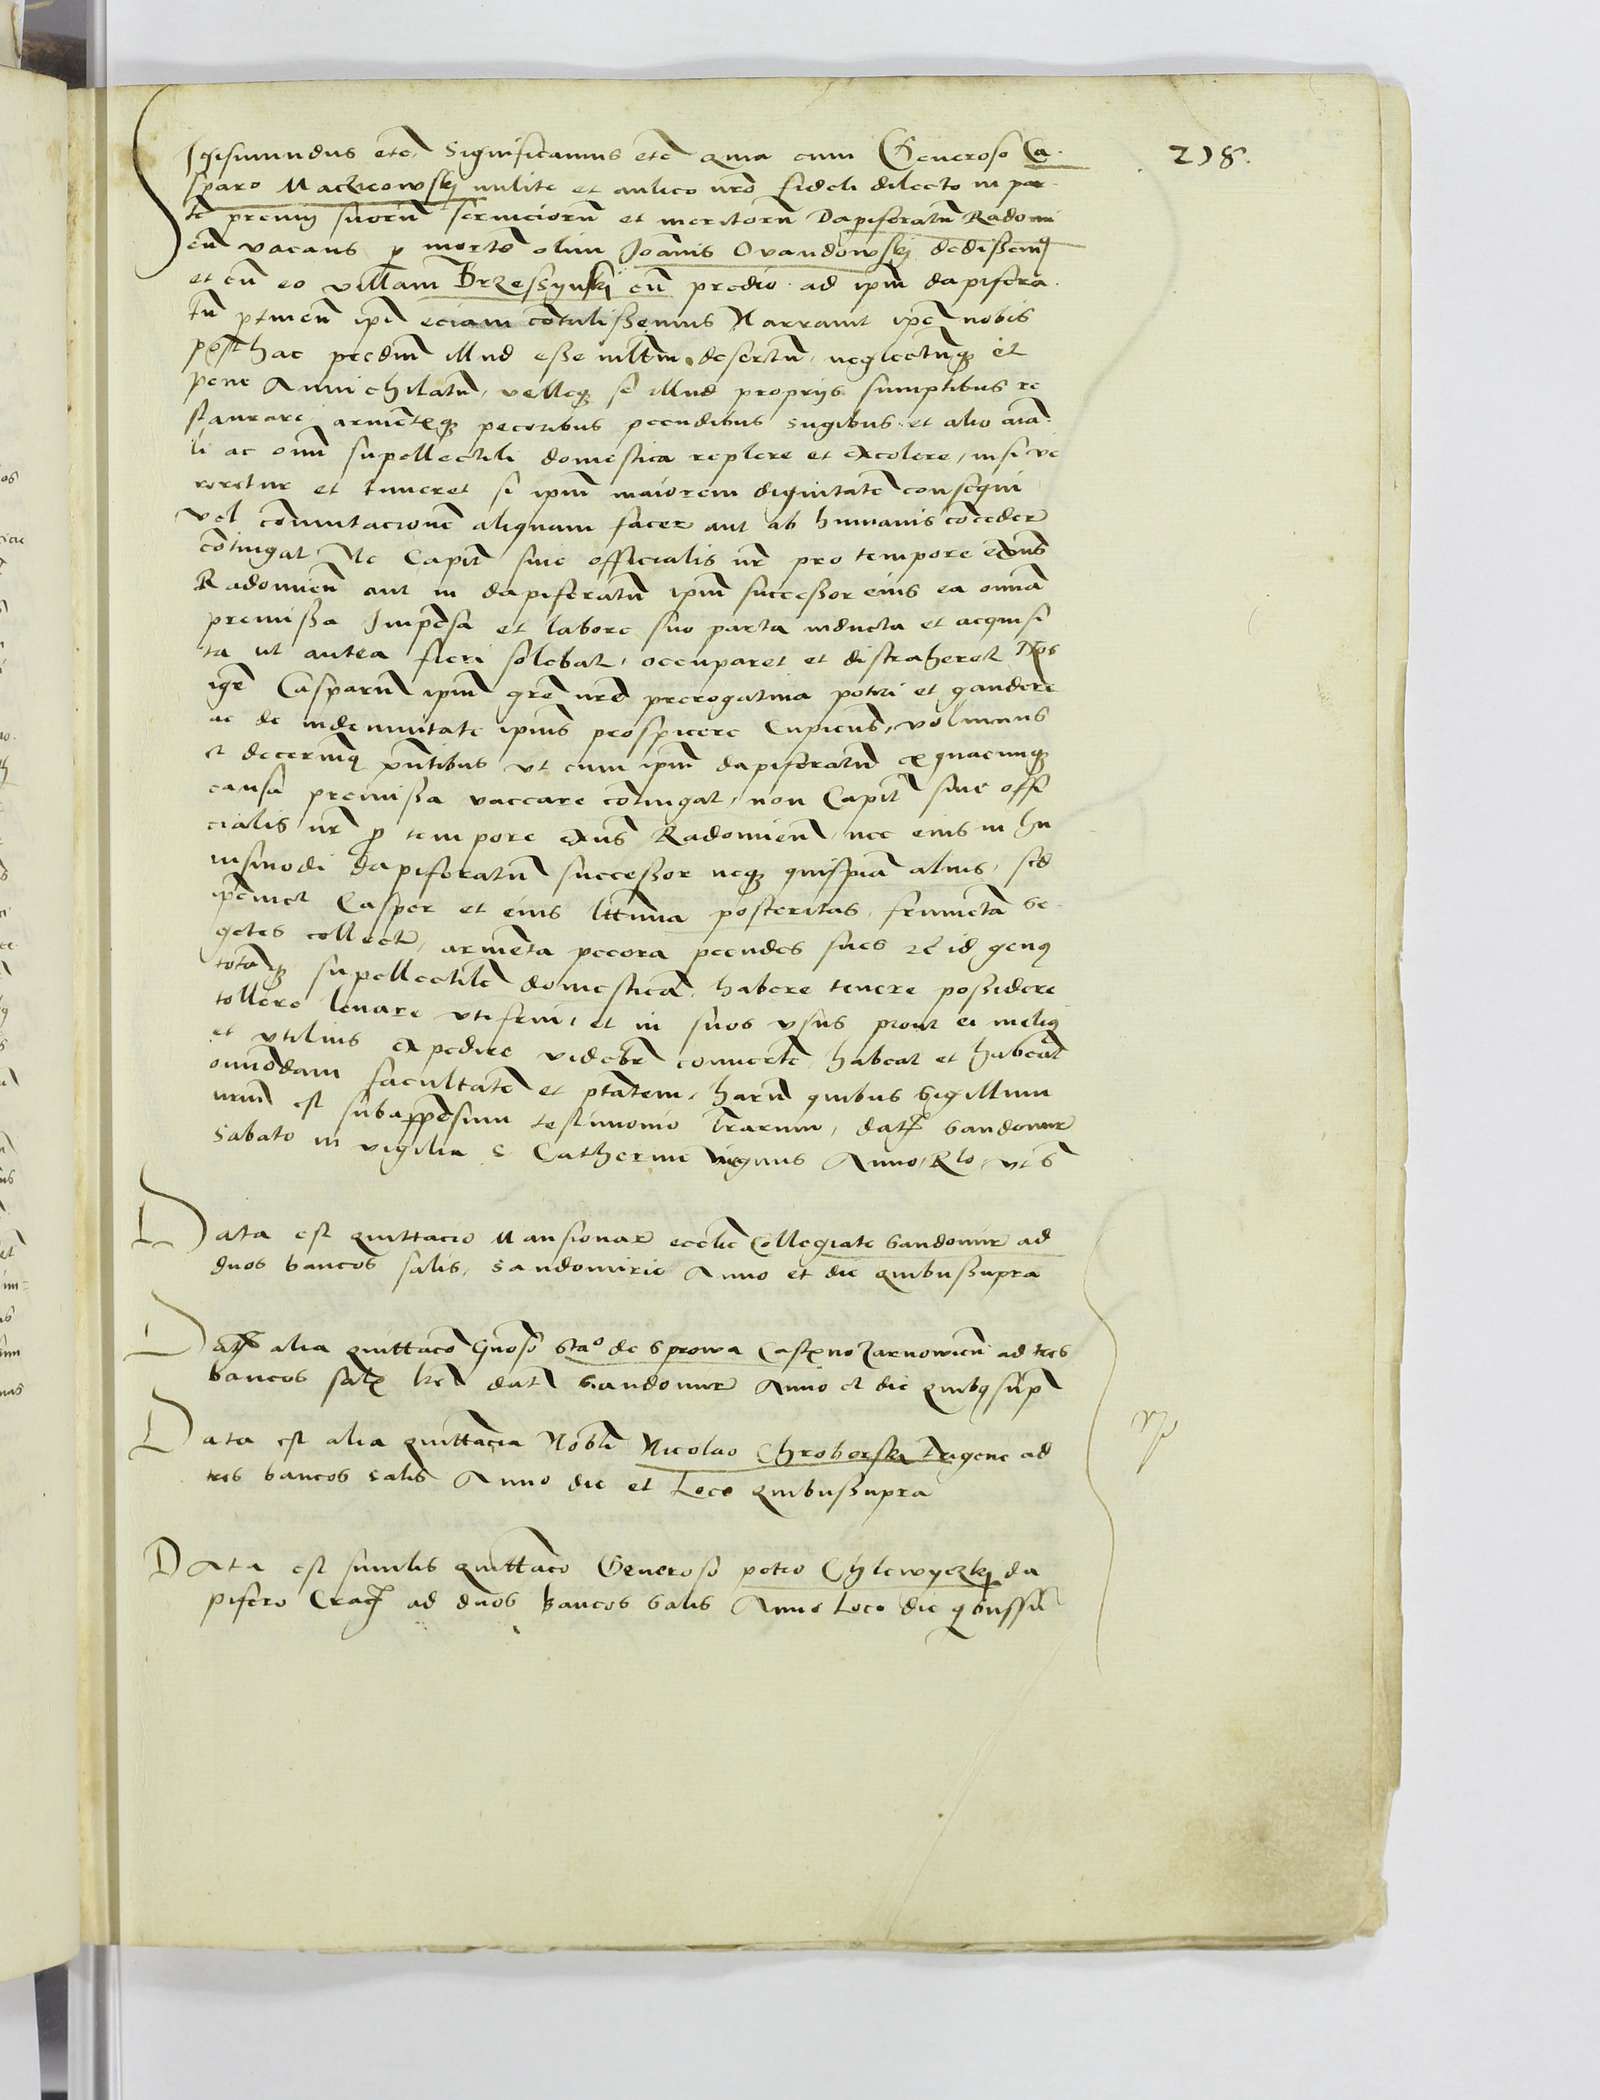 218.
Sigismundus etc̃. Significamus etc̃ Quia cum Generoso Ca-
sparo Maczieowskj milite et aulico nr̃o fideli dilecto in par-
te premij suorũ seruiciorũ et meritorũ Dapiferatũ Radomi
eñ vacans p mortẽ olim Joãnis Ovandowskj dedissemꝰ
et cũ eo villam Brzessynskj cũ predio ad ipm̃ dapifera-
tũ ptineñ ipi eciam cõtulissemus Narrauit ipe nobis
posthac prediũ illud esse desertũ, neglectũqȝ et
pene Annichilatũ, velleqȝ se illud proprijs sumptibus re
staurare armẽtisqȝ pecoribus pecudibus iugibus et alio aĩa-
li ac omni supellectili domestica replere et excolere, nisi ve
reretur et timeret si ipm̃ maiorem dignitatẽ consequi
vel cõmutacionẽ aliquam facer̃ aut ab humanis cõceder̃
cõtingat Ne Capit̃ siue officialis nr̃ pro tempore exñs
Radomieñ aut in dapiferatũ ipm̃ successor eius ea omĩa
premissa Impẽsa et labore suo parta inducta et acquisi
ta ut antea fieri solebat, occuparet et distraheret Nos
igr̃ Casparũ ipm̃ gr̃e nr̃e prerogatiua potiri et gaudere
ac de indemnitate ipius prospicere Cupieñ, volumus
et decernimꝰ pñtibus vt cum ipm̃ dapiferatũ ex quacunqȝ
causa premissa vaccare cõtingat, non Capit̃ siue offi
cialis nr̃ p tempore exñs Radomieñ, nec eius in hu
iusmodi dapiferatũ successor neqȝ quispiã alius, sed
ipemet Casper et eius ltt̃ima posteritas, frumẽta se-
getes collectã, armẽta pecora pecudes sues et id genꝰ
totãqȝ supellectilẽ domesticã habere tenere possidere
tollere leuare vti frui, et in suos vsus prout ei meliꝰ
et vtilius expedire videbr̃ conuerte habeat et habeãt
omnodam facultatẽ et ptãtem, harũ quibus Sigillum
nrm̃ est subappẽsum testimonio lr̃arum, dat̃ Sandomir̃
Sabato in vigilia S Catherine virginis Anno, Rto, vt S

Data est Quittacio Mansionar̃ ecclie Collegiate Sandomir̃ ad
duos bancos salis, Sandomirie Anno et die Quibussupra

Data alia Quittacõ Gñoso Stao de Sprowa Castno Zarnowieñ ad tres
bancos salis dat̃ Sandomir̃ Anno et die Quibꝰ supᵃ

Data est alia Quittacia Nobli Nicolao Chroberski Trigene ad
tres bancos salis Anno die et Loco Quibussupra

Data est similis Quittacõ Generoso petro Chlewyczkj da
pifero Crac̃ ad duos bancos salis Anno Loco die